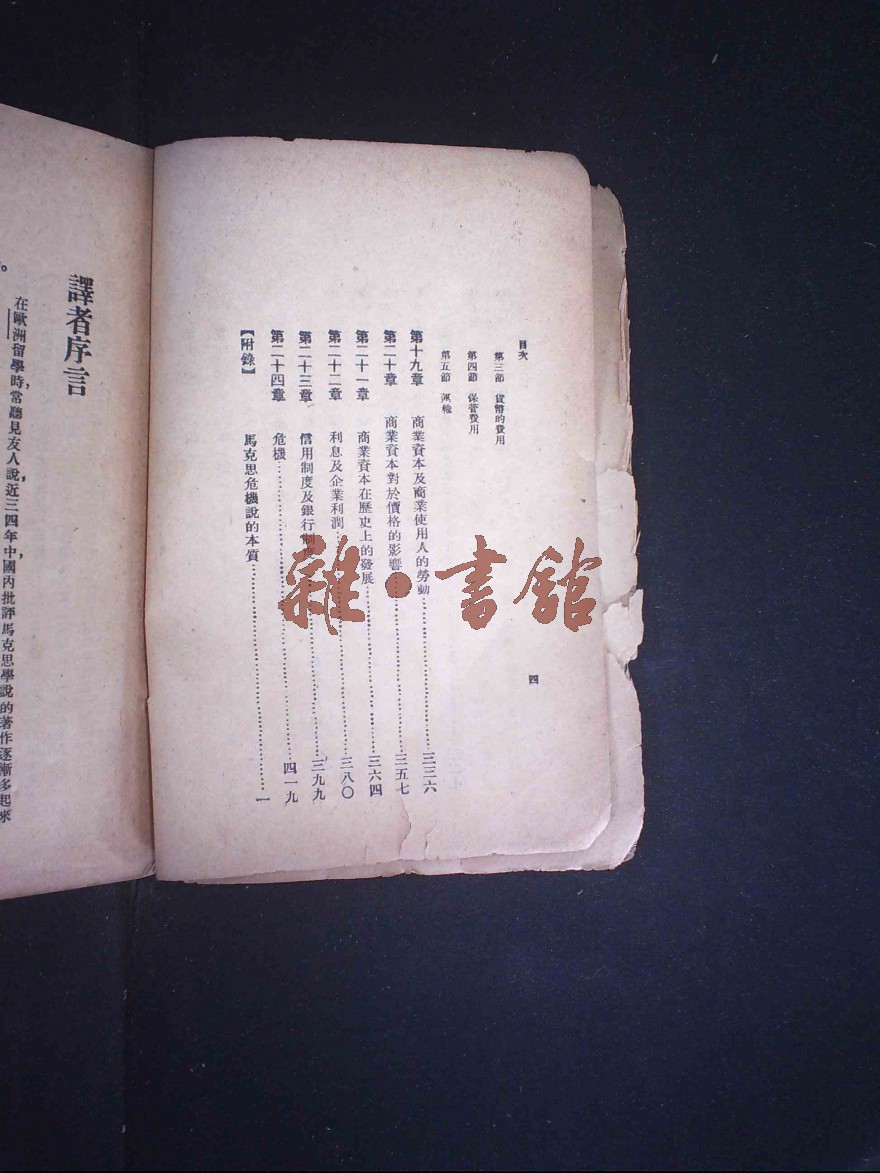 目次
第三節　貨幣的費用
第四節　保管費用
第五節　運輸
第十九章　商業資本及商業使用人的勞動……三三六
第二十章　商業資本對於價格的影響……三五七
第二十一章　商業資本在歷史上的發展……三六四
第二十二章　利息及企業利潤……三八〇
第二十三章　信用制度及銀行制……三九九
第二十四章　危機……四一九
【附錄】　馬克思危機說的本質……一
四
譯者序言
在歐洲留學時，常聽見友人說，近三四年中，國內批評馬克思學說的著作逐漸多起來
雜·書館